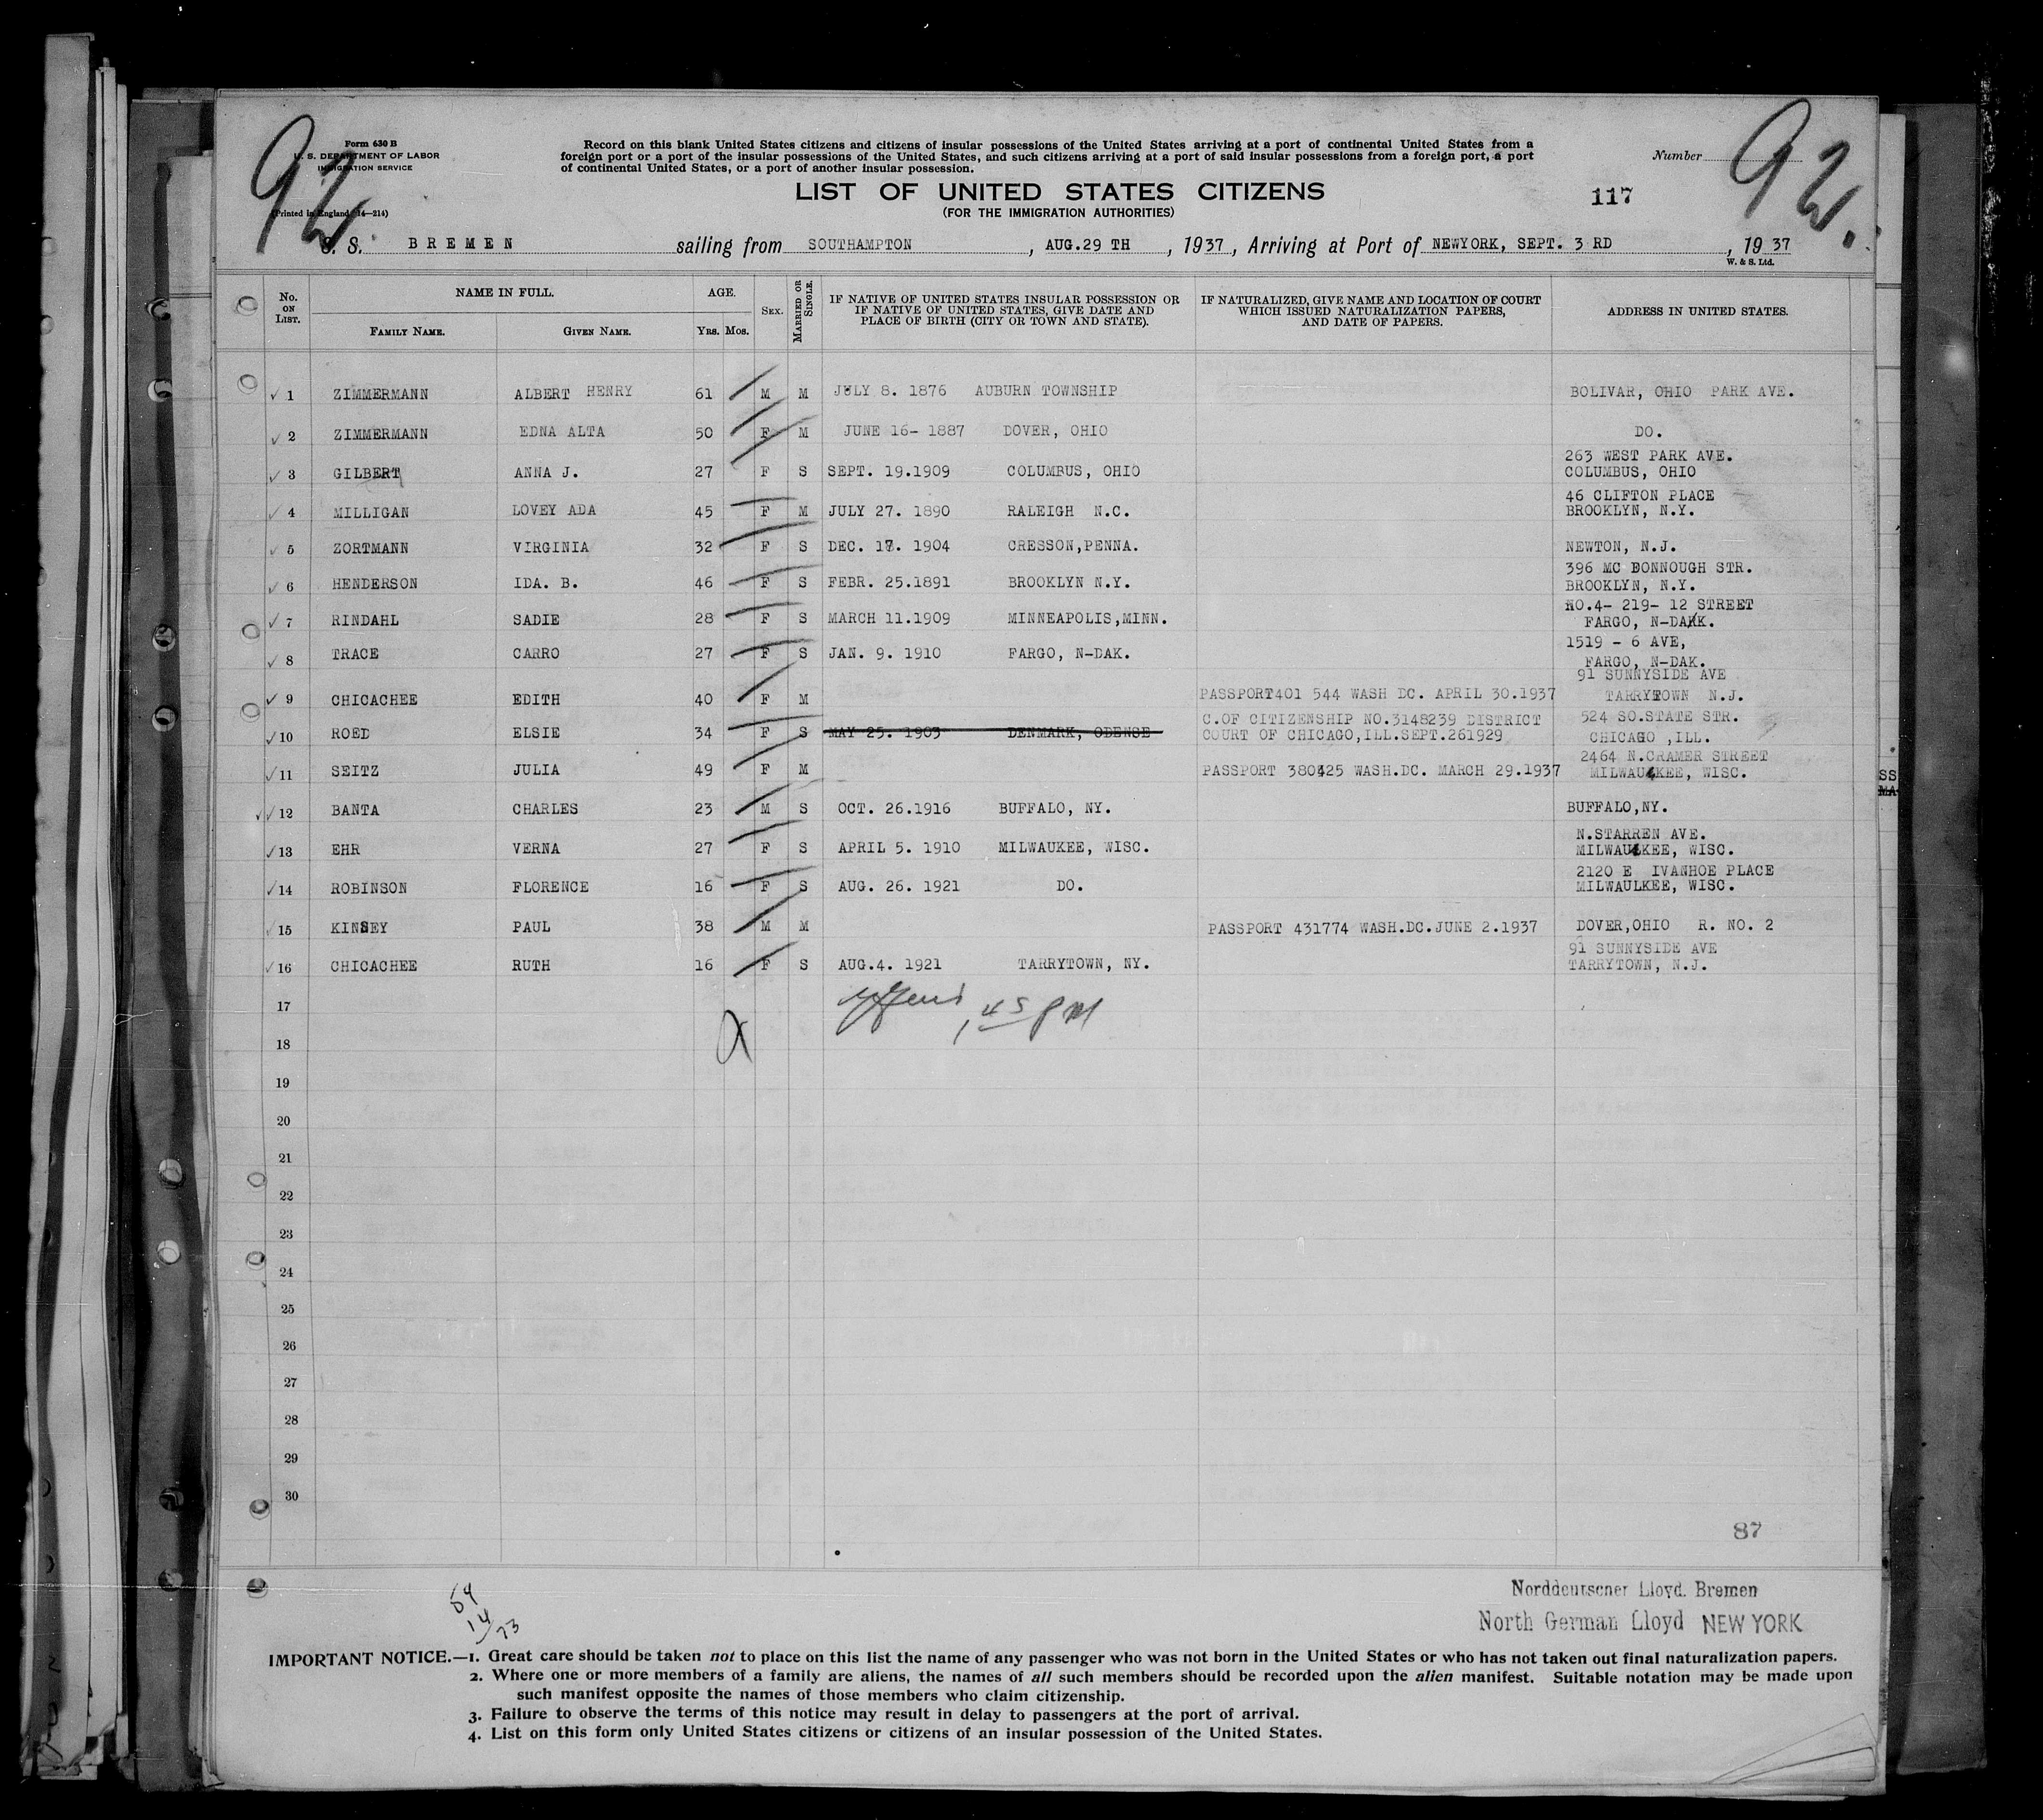 92.
Form 630 B
U. S. DEPARTMENT OF LABOR
IMMIGRATION SERVICE
(Printed in England 14—214)
Record on this blank United States citizens and citizens of insular possessions of the United States arriving at a port of continental United States from a
foreign port or a port of the insular possessions of the United States, and such citizens arriving at a port of said insular possessions from a foreign port, a port
of continental United States, or a port of another insular possession.
Number
92.
LIST OF UNITED STATES CITIZENS
(FOR THE IMMIGRATION AUTHORITIES)
117
S. S. BREMEN sailing from SOUTHAMPTON, AUG.29 TH, 1937, Arriving at Port of NEWYORK, SEPT. 3 RD, 19 37
W. & S. Ltd.
No. ON LIST. NAME IN FULL. FAMILY NAME. GIVEN NAME. AGE. YRS. MOS. SEX. MARRIED OR SINGLE. IF NATIVE OF UNITED STATES INSULAR POSSESSION OR IF NATIVE OF UNITED STATES, GIVE DATE AND PLACE OF BIRTH (CITY OR TOWN AND STATE). IF NATURALIZED, GIVE NAME AND LOCATION OF COURT WHICH ISSUED NATURALIZATION PAPERS, AND DATE OF PAPERS. ADDRESS IN UNITED STATES.
✓ 1 ZIMMERMANN ALBERT HENRY 61 M M JULY 8. 1876 AUBURN TOWNSHIP BOLIVAR, OHIO PARK AVE.
✓ 2 ZIMMERMANN EDNA ALTA 50 F M JUNE 16- 1887 DOVER, OHIO DO.
263 WEST PARK AVE.
✓ 3 GILBERT ANNA J. 27 F S SEPT. 19.1909 COLUMBUS, OHIO COLUMBUS, OHIO
46 CLIFTON PLACE
✓ 4 MILLIGAN LOVEY ADA 45 F M JULY 27. 1890 RALEIGH N.C. BROOKLYN, N.Y.
✓ 5 ZORTMANN VIRGINIA 32 F S DEC. 17. 1904 CRESSON,PENNA. NEWTON, N.J.
396 MC DONNOUGH STR.
✓ 6 HENDERSON IDA. B. 46 F S FEBR. 25.1891 BROOKLYN N.Y. BROOKLYN, N.Y.
NO.4- 219- 12 STREET
✓ 7 RINDAHL SADIE 28 F S MARCH 11.1909 MINNEAPOLIS,MINN. FARGO, N-DAK.
1519 - 6 AVE,
✓ 8 TRACE CARRO 27 F S JAN. 9. 1910 FARGO, N-DAK. FARGO, N-DAK.
91 SUNNYSIDE AVE
✓ 9 CHICACHEE EDITH 40 F M PASSPORT401 544 WASH DC. APRIL 30.1937 TARRYTOWN N.J.
C.OF CITIZENSHIP NO.3148239 DISTRICT 524 SO.STATE STR.
✓10 ROED ELSIE 34 F S MAY 25. 1903 DENMARK, ODENSE COURT OF CHICAGO,ILL.SEPT.261929 CHICAGO ,ILL.
2464 N.CRAMER STREET
✓11 SEITZ JULIA 49 F M PASSPORT 380425 WASH.DC. MARCH 29.1937 MILWAUKEE, WISC.
✓ 12 BANTA CHARLES 23 M S OCT. 26.1916 BUFFALO, NY. BUFFALO,NY.
N.STARREN AVE.
✓13 EHR VERNA 27 F S APRIL 5. 1910 MILWAUKEE, WISC. MILWAUKEE, WISC.
2120 E IVANHOE PLACE
✓14 ROBINSON FLORENCE 16 F S AUG. 26. 1921 DO. MILWAULKEE, WISC.
✓15 KINSEY PAUL 38 M M PASSPORT 431774 WASH.DC.JUNE 2.1937 DOVER,OHIO R. NO. 2
91 SUNNYSIDE AVE
✓16 CHICACHEE RUTH 16 F S AUG.4. 1921 TARRYTOWN, NY. TARRYTOWN, N.J.
17
45 PM
18
19
20
21
22
23
24
25
26
27
28
29
30
87
SS
MA
Norddeutscher Lloyd. Bremen
North German Lloyd NEW YORK
14
73
IMPORTANT NOTICE.—1. Great care should be taken not to place on this list the name of any passenger who was not born in the United States or who has not taken out final naturalization papers.
2. Where one or more members of a family are aliens, the names of all such members should be recorded upon the alien manifest. Suitable notation may be made upon
such manifest opposite the names of those members who claim citizenship.
3. Failure to observe the terms of this notice may result in delay to passengers at the port of arrival.
4. List on this form only United States citizens or citizens of an insular possession of the United States.